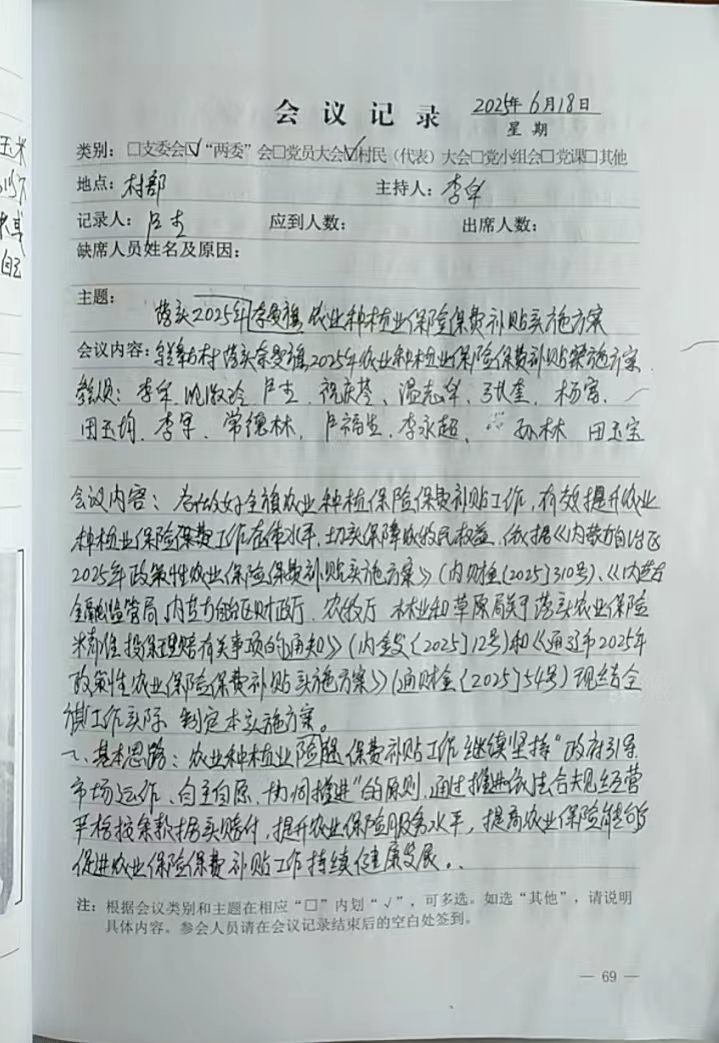 玉米
会议记录 2025年6月18日
星期
类别：□支委会☑“两委”会□党员大会☑村民（代表）大会□党小组会□党课□其他
地点：村部 主持人：李军
记录人：卢吉 应到人数： 出席人数：
缺席人员姓名及原因：
主题：
落实2025年奈曼旗农业种植业保险保费补贴实施方案
会议内容：村落实奈曼旗2025年农业种植业保险保费补贴实施方案
参会人员：李军、卢吉、祝庆芩、温志军、杨富、
田玉均、李军、常德林、卢福生、李永超、孙林 田玉宝
会议内容：为做好全旗农业种植保险保费补贴工作，有效提升农业
种植业保险保费工作整体水平，切实保障农牧民权益，依据《内蒙古自治区
2025年政策性农业保险保费补贴实施方案》（内财金〔2025〕310号）、《内蒙古
金融监管局、内蒙古自治区财政厅、农牧厅 林业和草原局关于落实农业保险
精准投保理赔有关事项的通知》（内金发〔2025〕12号）和《通辽市2025年
政策性农业保险保费补贴实施方案》（通财金〔2025〕54号）现结合全
旗工作实际 制定本实施方案。
一、基本思路：农业种植业险保费补贴工作继续坚持“政府引导
市场运作、自主自愿、协同推进”的原则，通过推进依法合规经营
严格按条款据实赔付，提升农业保险服务水平，提高农业保险
促进农业保险保费补贴工作持续健康发展。
注：根据会议类别和主题在相应“□”内划“√”，可多选。如选“其他”，请说明
具体内容。参会人员请在会议记录结束后的空白处签到。
— 69 —